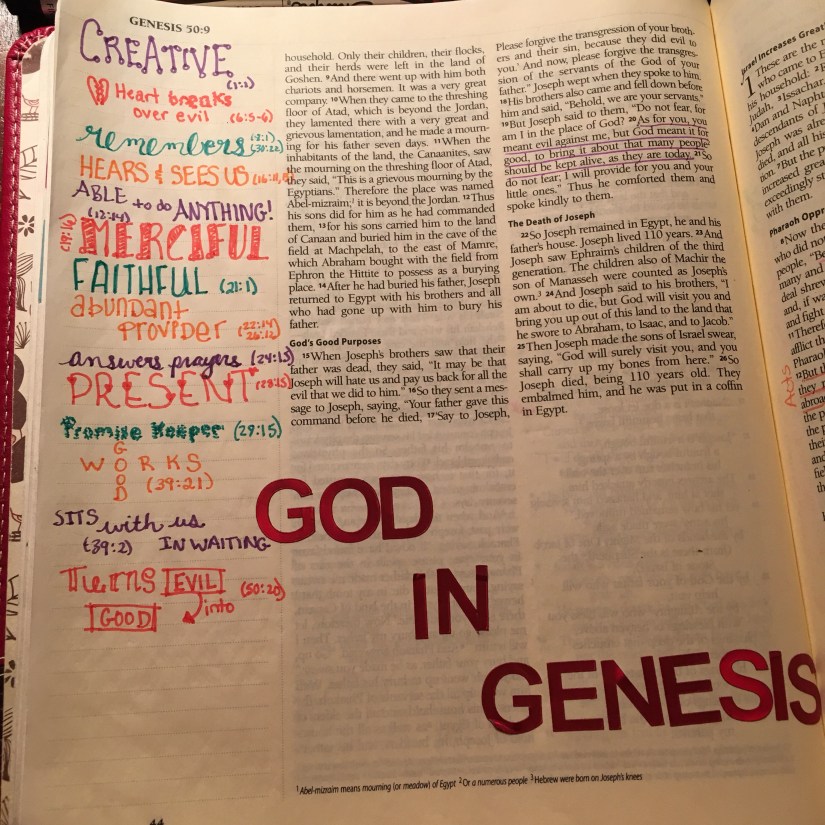 GENESIS 50:9
CREATIVE
(1:1)
Heart breaks
over evil (6:5-6)
remembers (8:1)
(30:22)
HEARS & SEES US (16:11,
ABLE to do ANYTHING!
(12:14)
(19:16)
MERCIFUL
FAITHFUL (21:1)
abundant
provider (22:14)
26:12)
answers prayers (24:15)
PRESENT (28:15)
Promise Keeper (29:15)
GOOD
WORKS
(39:21)
SITS with us
(39:2) IN WAITING
Turns EVIL (50:20)
into
GOOD
household. Only their children, their flocks,
and their herds were left in the land of
Goshen. 9And there went up with him both
chariots and horsemen. It was a very great
company. 10When they came to the threshing
floor of Atad, which is beyond the Jordan,
they lamented there with a very great and
grievous lamentation, and he made a mourn-
ing for his father seven days. 11When the
inhabitants of the land, the Canaanites, saw
the mourning on the threshing floor of Atad,
they said, “This is a grievous mourning by the
Egyptians.” Therefore the place was named
Abel-mizraim;1 it is beyond the Jordan. 12Thus
his sons did for him as he had commanded
them, 13for his sons carried him to the land
of Canaan and buried him in the cave of the
field at Machpelah, to the east of Mamre,
which Abraham bought with the field from
Ephron the Hittite to possess as a burying
place. 14After he had buried his father, Joseph
returned to Egypt with his brothers and all
who had gone up with him to bury his
father.
God's Good Purposes
15When Joseph's brothers saw that their
father was dead, they said, “It may be that
Joseph will hate us and pay us back for all the
evil that we did to him.” 16So they sent a mes-
sage to Joseph, saying, “Your father gave this
command before he died, 17‘Say to Joseph,
Please forgive the transgression of your broth-
ers and their sin, because they did evil to
you.’ And now, please forgive the transgres-
sion of the servants of the God of your
father.” Joseph wept when they spoke to him.
18His brothers also came and fell down before
him and said, “Behold, we are your servants.”
19But Joseph said to them, “Do not fear, for
am I in the place of God? 20As for you, you
meant evil against me, but God meant it for
good, to bring it about that many people2
should be kept alive, as they are today. 21So
do not fear; I will provide for you and your
little ones.” Thus he comforted them and
spoke kindly to them.
The Death of Joseph
22So Joseph remained in Egypt, he and his
father's house. Joseph lived 110 years. 23And
Joseph saw Ephraim's children of the third
generation. The children also of Machir the
son of Manasseh were counted as Joseph's
own.3 24And Joseph said to his brothers, “I
am about to die, but God will visit you and
bring you up out of this land to the land that
he swore to Abraham, to Isaac, and to Jacob.”
25Then Joseph made the sons of Israel swear,
saying, “God will surely visit you, and you
shall carry up my bones from here.” 26So
Joseph died, being 110 years old. They
embalmed him, and he was put in a coffin
in Egypt.
GOD
IN
GENESIS
1 Abel-mizraim means mourning (or meadow) of Egypt 2 Or a numerous people 3 Hebrew were born on Joseph's knees
44
Israel Increases Great
1 These are the
who came to E
his household: 2
Judah, 3Issachar,
4Dan and Naphta
descendants of
Joseph was alre
died, and all his
tion. 7But the p
increased grea
exceedingly st
with them.
Pharaoh Oppr
8Now the
who did no
people, “Be
many and
deal shrew
and, if wa
and fight
11Theref
afflict th
Pharaoh
12But th
they
abroad
Acts